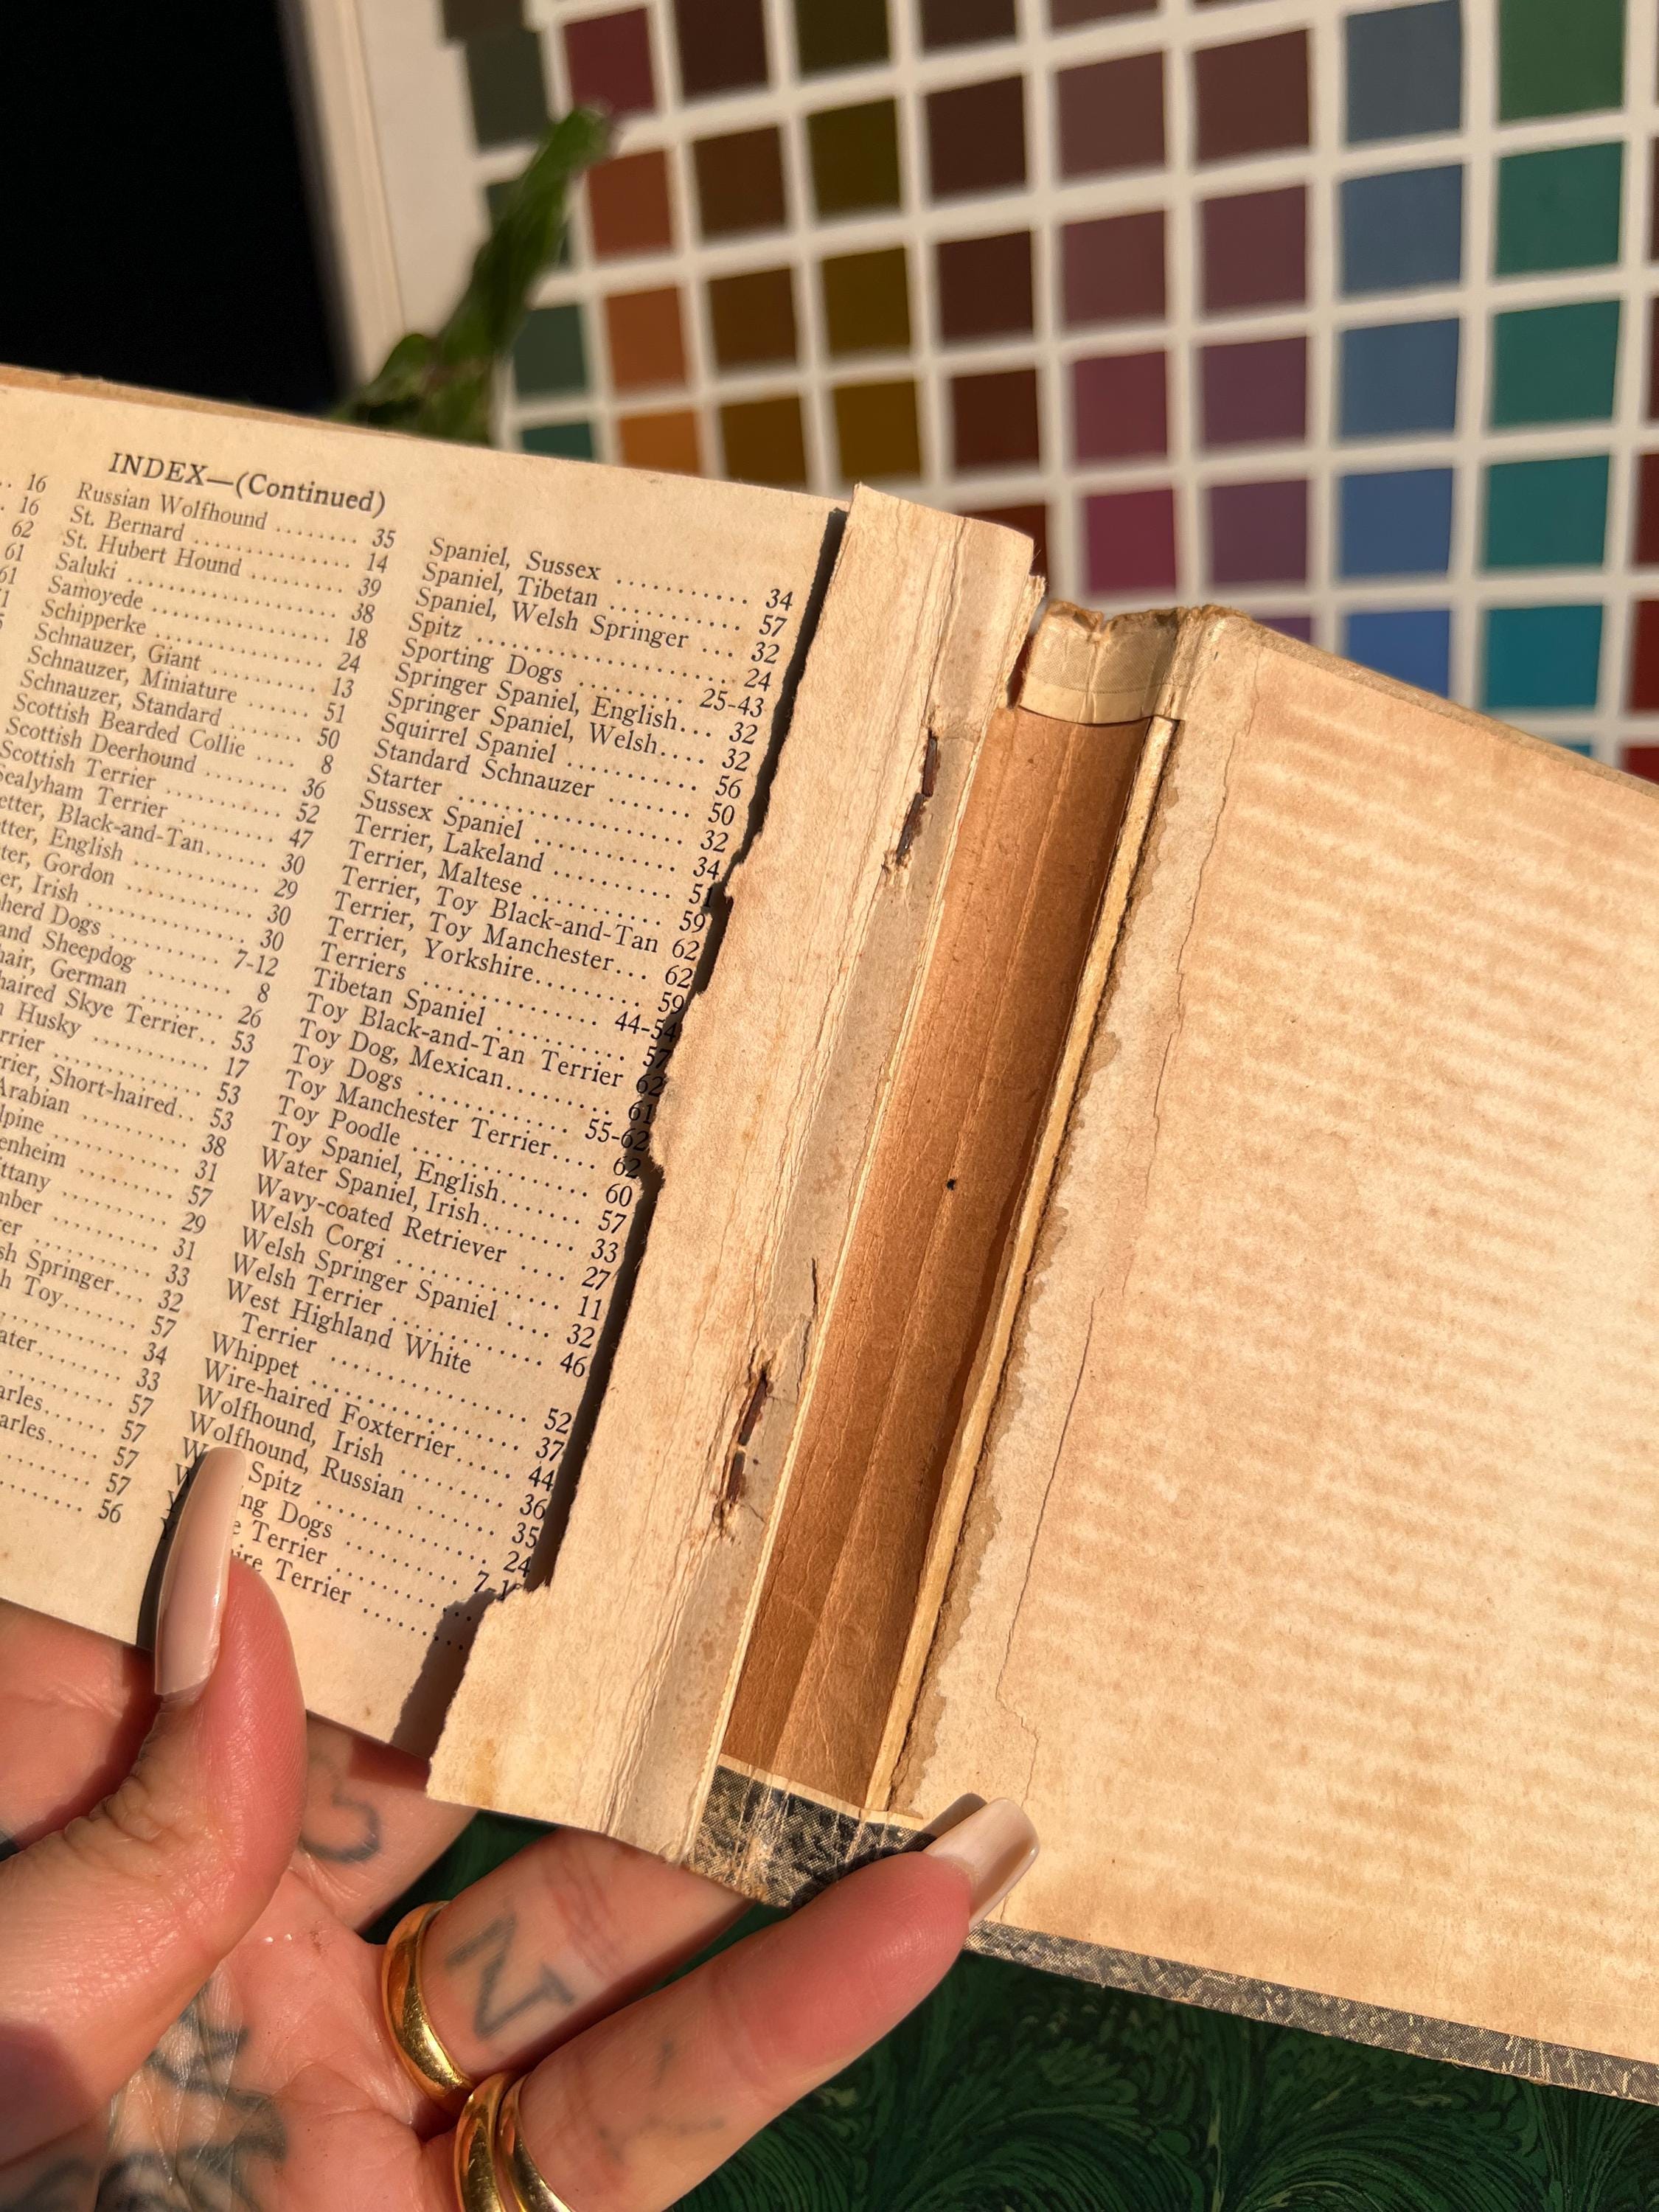 INDEX—(Continued)
16
16
62
61
61
Russian Wolfhound ........ 35
St. Bernard ................ 14
St. Hubert Hound ........ 39
Saluki ...................... 38
Samoyede ................. 18
Schipperke ................ 24
Schnauzer, Giant .......... 13
Schnauzer, Miniature ...... 51
Schnauzer, Standard ...... 50
Scottish Bearded Collie .... 8
Scottish Deerhound ........ 36
Scottish Terrier ............ 52
Sealyham Terrier .......... 47
Black-and-Tan...... 30
English ............ 29
Gordon ............ 30
Irish ............... 30
Dogs .......... 7-12
Sheepdog ........ 8
German .......... 26
Skye Terrier.. 53
Husky ............ 17
53
Short-haired.. 53
Arabian ............ 38
31
57
29
31
33
Springer... 32
Toy...... 57
34
33
57
57
57
57
56
Spaniel, Sussex .......... 34
Spaniel, Tibetan .......... 57
Spaniel, Welsh Springer ... 32
Spitz ...................... 24
Sporting Dogs ........ 25-43
Springer Spaniel, English... 32
Springer Spaniel, Welsh.... 32
Squirrel Spaniel .......... 56
Standard Schnauzer ....... 50
Starter .................... 32
Sussex Spaniel ............ 34
Terrier, Lakeland .......... 51
Terrier, Maltese .......... 59
Terrier, Toy Black-and-Tan 62
Terrier, Toy Manchester... 62
Terrier, Yorkshire.......... 59
Terriers ................ 44-54
Tibetan Spaniel ............ 57
Toy Black-and-Tan Terrier 62
Toy Dog, Mexican.......... 61
Toy Dogs .............. 55-62
Toy Manchester Terrier.... 62
Toy Poodle ................ 60
Toy Spaniel, English....... 57
Water Spaniel, Irish........ 33
Wavy-coated Retriever .... 27
Welsh Corgi .............. 11
Welsh Springer Spaniel .... 32
Welsh Terrier .............. 46
West Highland White
Terrier .................. 52
Whippet .................. 37
Wire-haired Foxterrier..... 44
Wolfhound, Irish .......... 36
Wolfhound, Russian ....... 35
Spitz ................ 24
Dogs
Terrier
Terrier
N